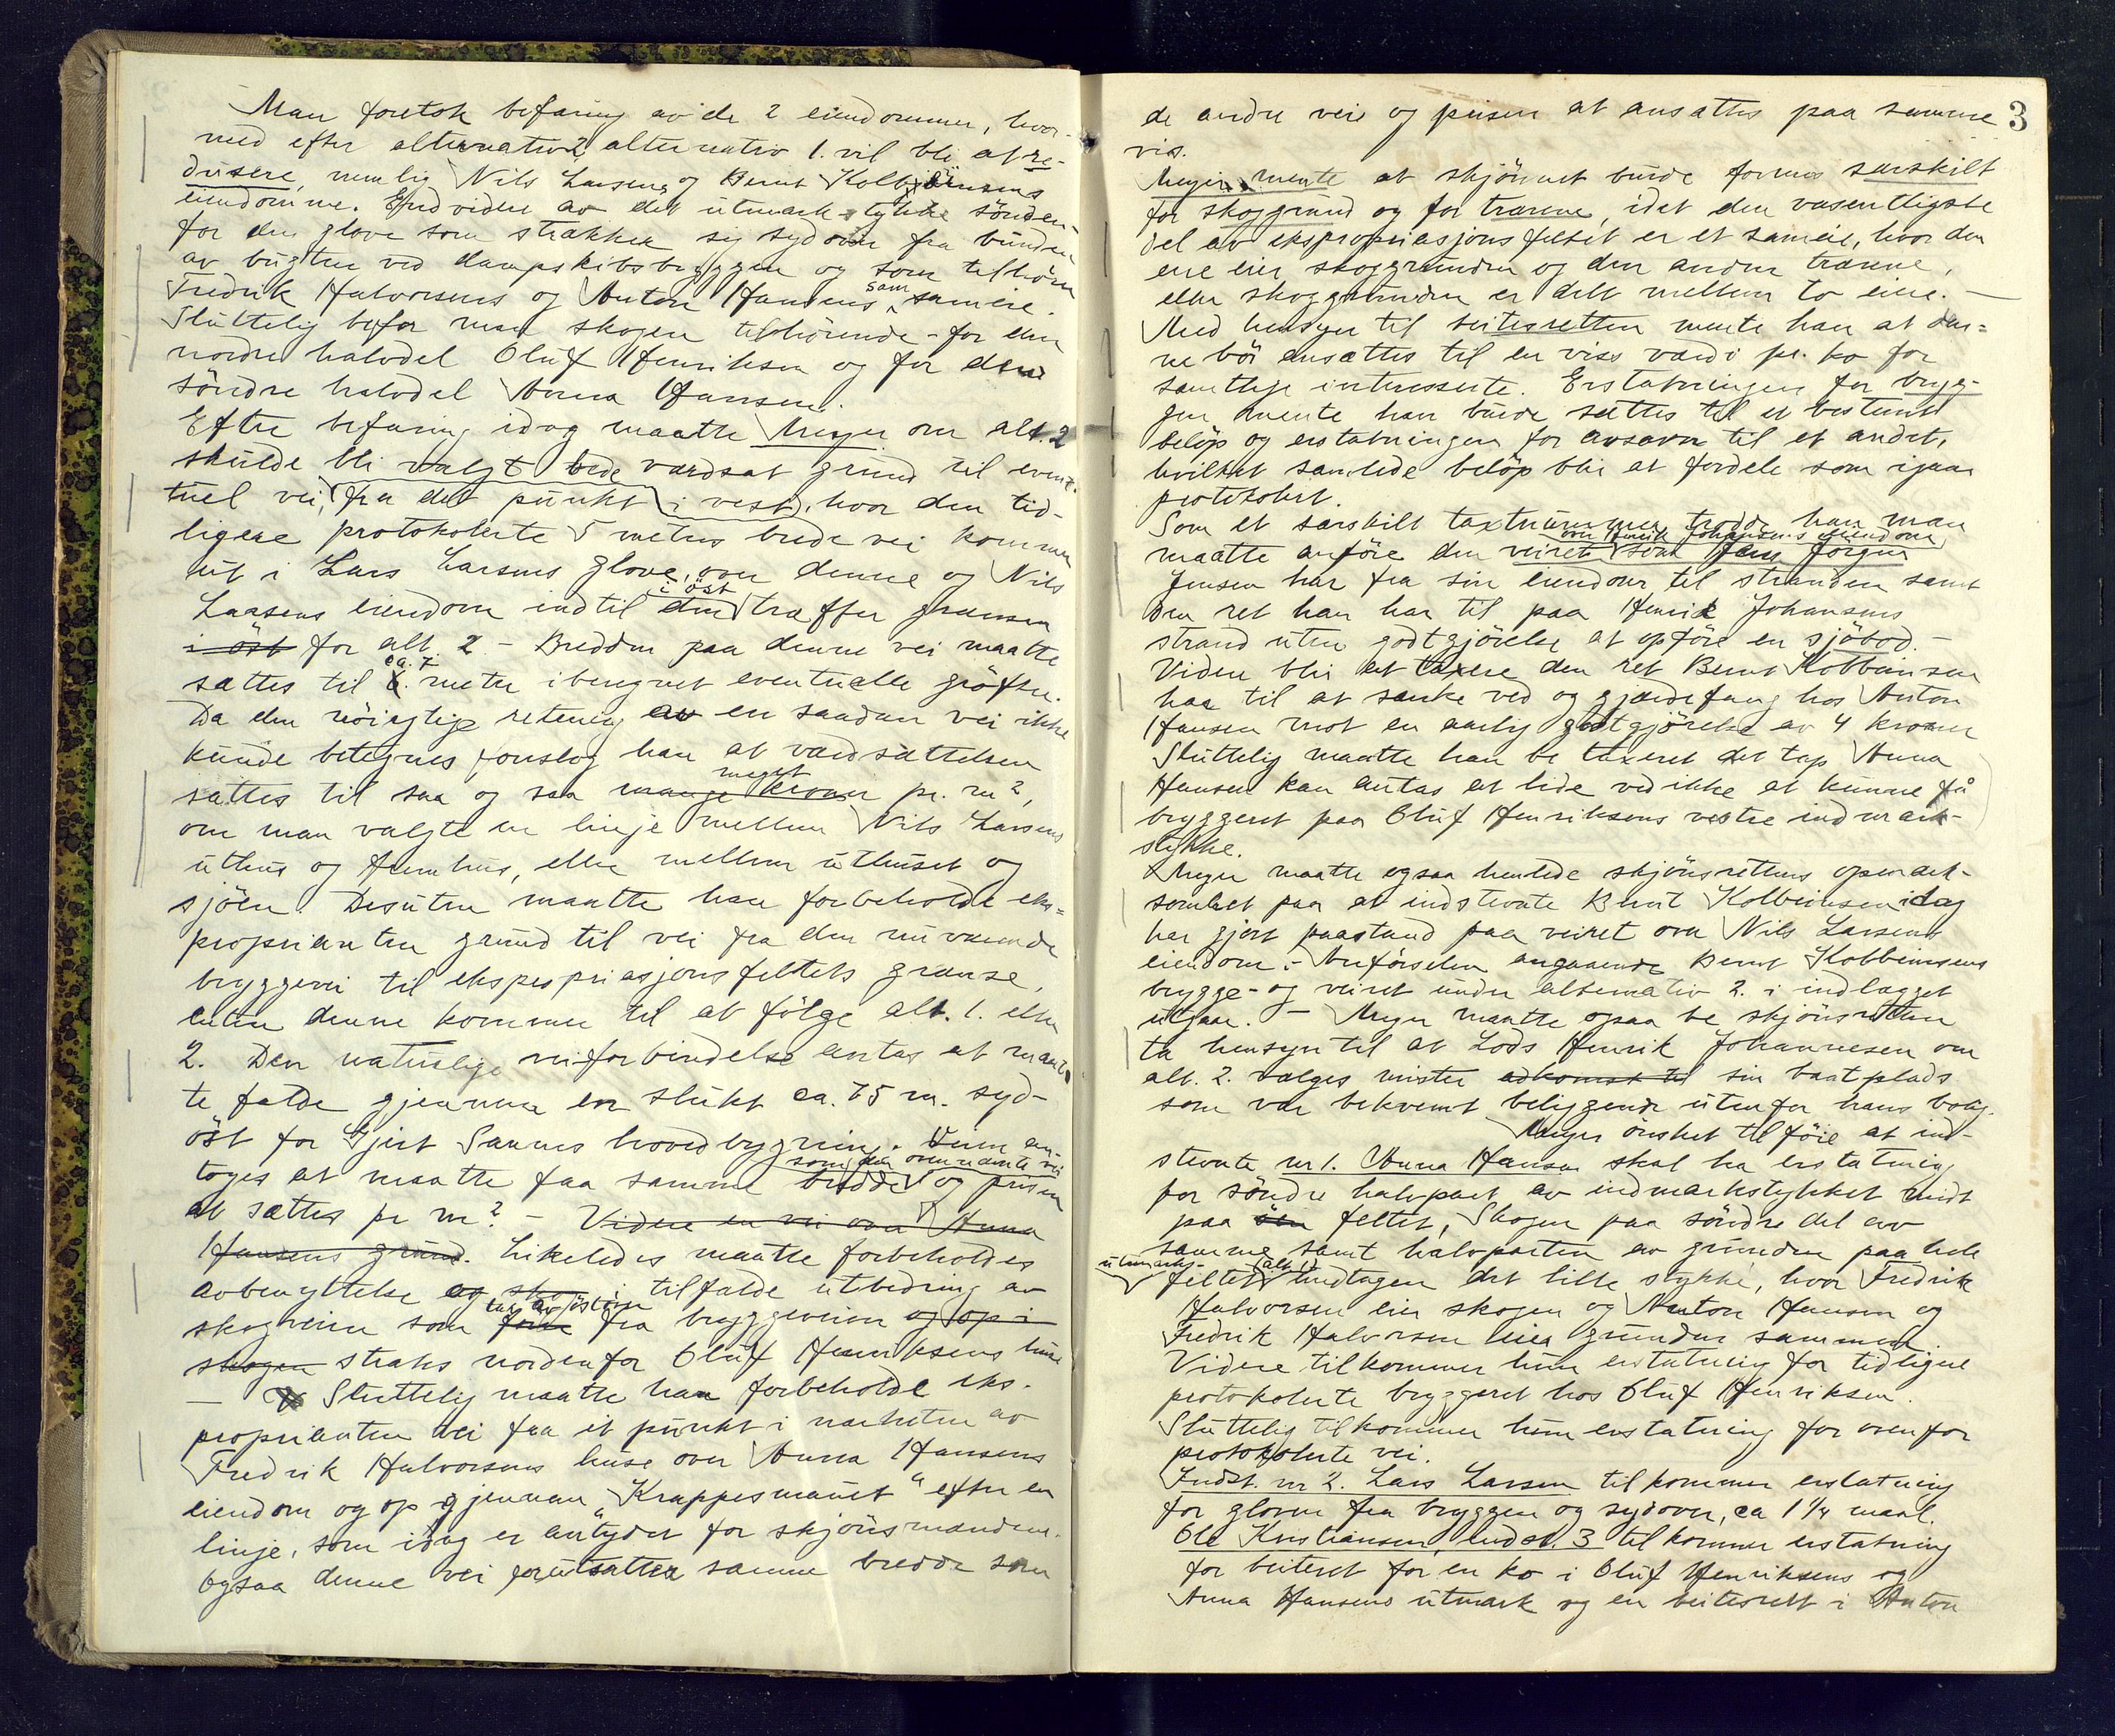 Man foretok befaring av de 2 eiendommer, hvor-
med efter alternativ 2 alternativ 1. vil bli at re-
dusere, nemlig Nils Larsens og Bernt Kolbeinsens
eiendomme. Endvidere av det utmarkstykke sönden-
for den glove som strækker sig sydover fra bunden
av bugten ved dampskibsbryggen og som tilhörer
Fredrik Halvorsens og Anton Hansens som sameie.
Sluttelig befor man skogen tilhörende - for den
nordre halvdel Oluf Henriksen og for den
söndre halvdel Anna Hansen.
Efter befaring idag maatte Meyer om alt. 2
skulde bli valgt bede værdsat grund til even-
tuel vei, fra det punkt i vest, hvor den tid-
ligere protokolerte 5 meters brede vei kommer
ut i Lars Larsens glove, over denne og Nils
Larsens eiendom indtil den i öst træffer grænsen
i öst for alt. 2 - Bredden paa denne vei maatte
sættes til ca. 7 meter iberegnet eventuelle gröfter.
Da den nöiagtige retning av en saadan vei ikke
kunde betegnes foreslog han at værdsættelsen
sættes til saa og saa mange kroner meget pr. m²,
om man valgte en linje mellem Nils Larsens
uthus og hus, eller mellem uthuset og
sjöen. Desuten maatte han forbeholde eks-
proprianten grund til vei fra den nuværende
bryggevei til ekspropriasjonsfeltets grænse,
enten denne kommer til at fölge alt. 1. eller
2. Den naturlige veiforbindelse antas at maat-
te falde gjennem en slukt ca. 75 m. syd-
öst for Gjert Sannes hovedbygning. Veien an-
toges at maatte faa samme bredde som den ovennævnte vei og prisen
at sættes pr m². - Videre en vei over Anna
Hansens grund. Likeledes maatte forbeholdes
avbenyttelse og i tilfælde utbedring av
skogveien som tar av östover fra bryggeveien og op i
skogen straks nordenfor Oluf Henriksens huse
- Sluttelig maatte han forbeholde eks-
proprianten vei fra et punkt i nærheten av
Fredrik Halvorsens huse over Anna Hansens
eiendom og op gjennem "Krappesmauet" efter en
linje, som idag er antydet for skjönsmændene.
Ogsaa denne vei forutsættes samme bredde som
3
de andre veie og prisen at ansættes paa samme
vis.
Meyer mente at skjönnet burde formes særskilt
for skoggrund og for trærne, idet den væsentligste
del av ekspropriasjonsfeltet er et sameie, hvor den
ene eier skoggrunden og den anden trærne,
eller skoggrunden er delt mellem to eiere. -
Med hensyn til beitesretten mente han at den-
ne bör ansættes til en viss værdi pr. ko for
samtlige interesserte. Erstatningen for bryg-
gen mente han burde sættes til et bestemt
belöp og erstatningen for avsavn til et andet,
hvilket samlede belöp blir at fordele som igaar
protokolert.
Som et særskilt taxtnummer trodde han man
maatte anföre den veiret over Henrik Johansens eiendom som Jens Jörgen
Jensen har fra sin eiendom til stranden samt
den ret han har til paa Henrik Johansens
strand uten godtgjörelse at opföre en sjöbod. -
Videre blir at taxere den ret Bernt Kolbeinsen
har til at sanke ved og gjærdefang hos Anton
Hansen mot en aarlig godtgjörelse av 4 kroner
Sluttelig maatte han be taxeret det tap Anna
Hansen kan antas at lide ved ikke at kunne få
bryggeret paa Oluf Henriksens vestre indmark-
stykke.
Meyer maatte ogsaa henlede skjönsrettens opmerk-
somhet paa at indstevnte Bernt Kolbeinsen idag
har gjort paastand paa veiret over Nils Larsens
eiendom. - Anförselen angaaende Bernt Kolbeinsens
brygge- og veiret under alternativ 2. i indlægget
utgaar. - Meyer maatte ogsaa be skjönsretten
ta hensyn til at Lods Henrik Johannesen om
alt. 2. vælges mister adkomst til sin baatplads
som var bekvemt beliggende utenfor hans bolig.
Meyer önsket tilföie at ind-
stevnte nr 1. Anna Hansen skal ha erstatning
for söndre halvpart av indmarkstykket midt
paa feltet, Skogen paa söndre del av
samme samt halvparten av grunden paa hele
utmarks-feltet (alt 1) undtagen det lille stykke, hvor Fredrik
Halvorsen eier skogen og Anton Hansen og
Fredrik Halvorsen eier grunden sammen.
Videre tilkommer hun erstatning for tidligere
protokolerte bryggeret hos Oluf Henriksen.
Sluttelig tilkommer hun erstatning for ovenfor
protokolerte vei.
Indst. nr 2. Lars Larsen tilkommer erstatning
for gloven fra bryggen og sydover, ca 1 1/4 maal.
Ole Kristiansen, indst. 3 tilkommer erstatning
for beiteret for en ko i Oluf Henriksens og
Anna Hansens utmark og en beitesrett i Anton